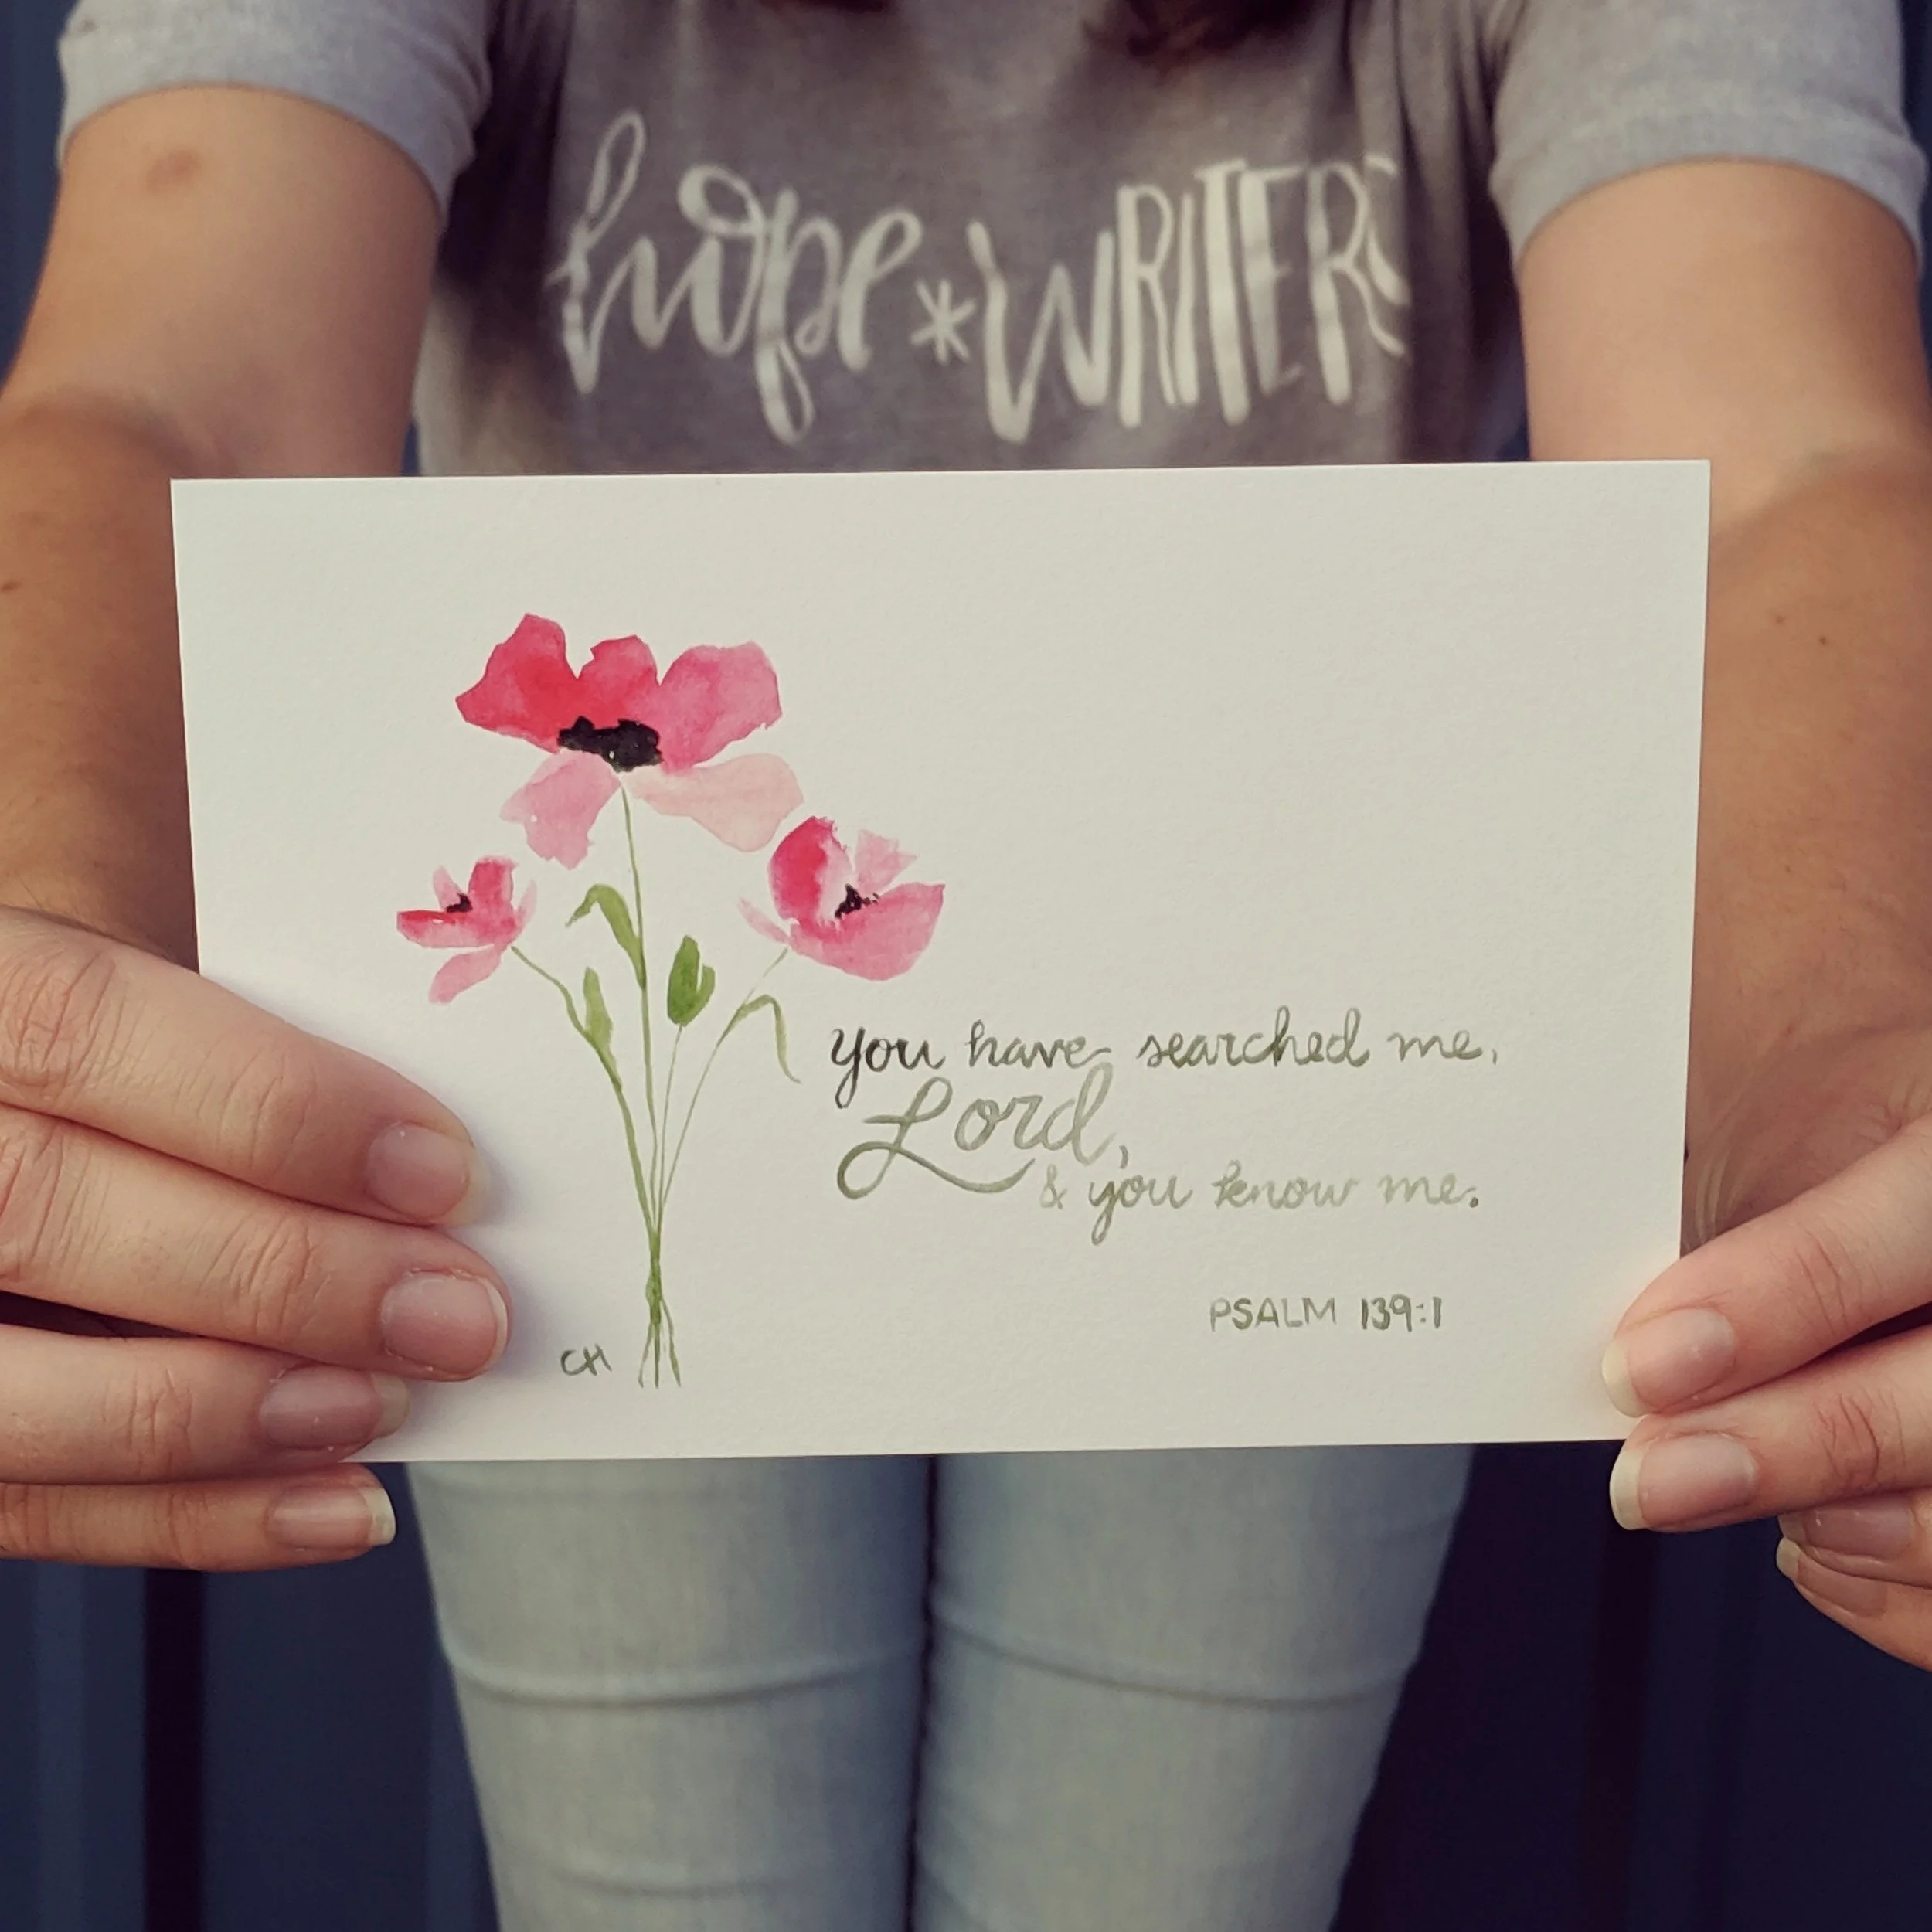 hope*WRITERS
you have searched me,
Lord,
& you know me.
PSALM 139:1
CH